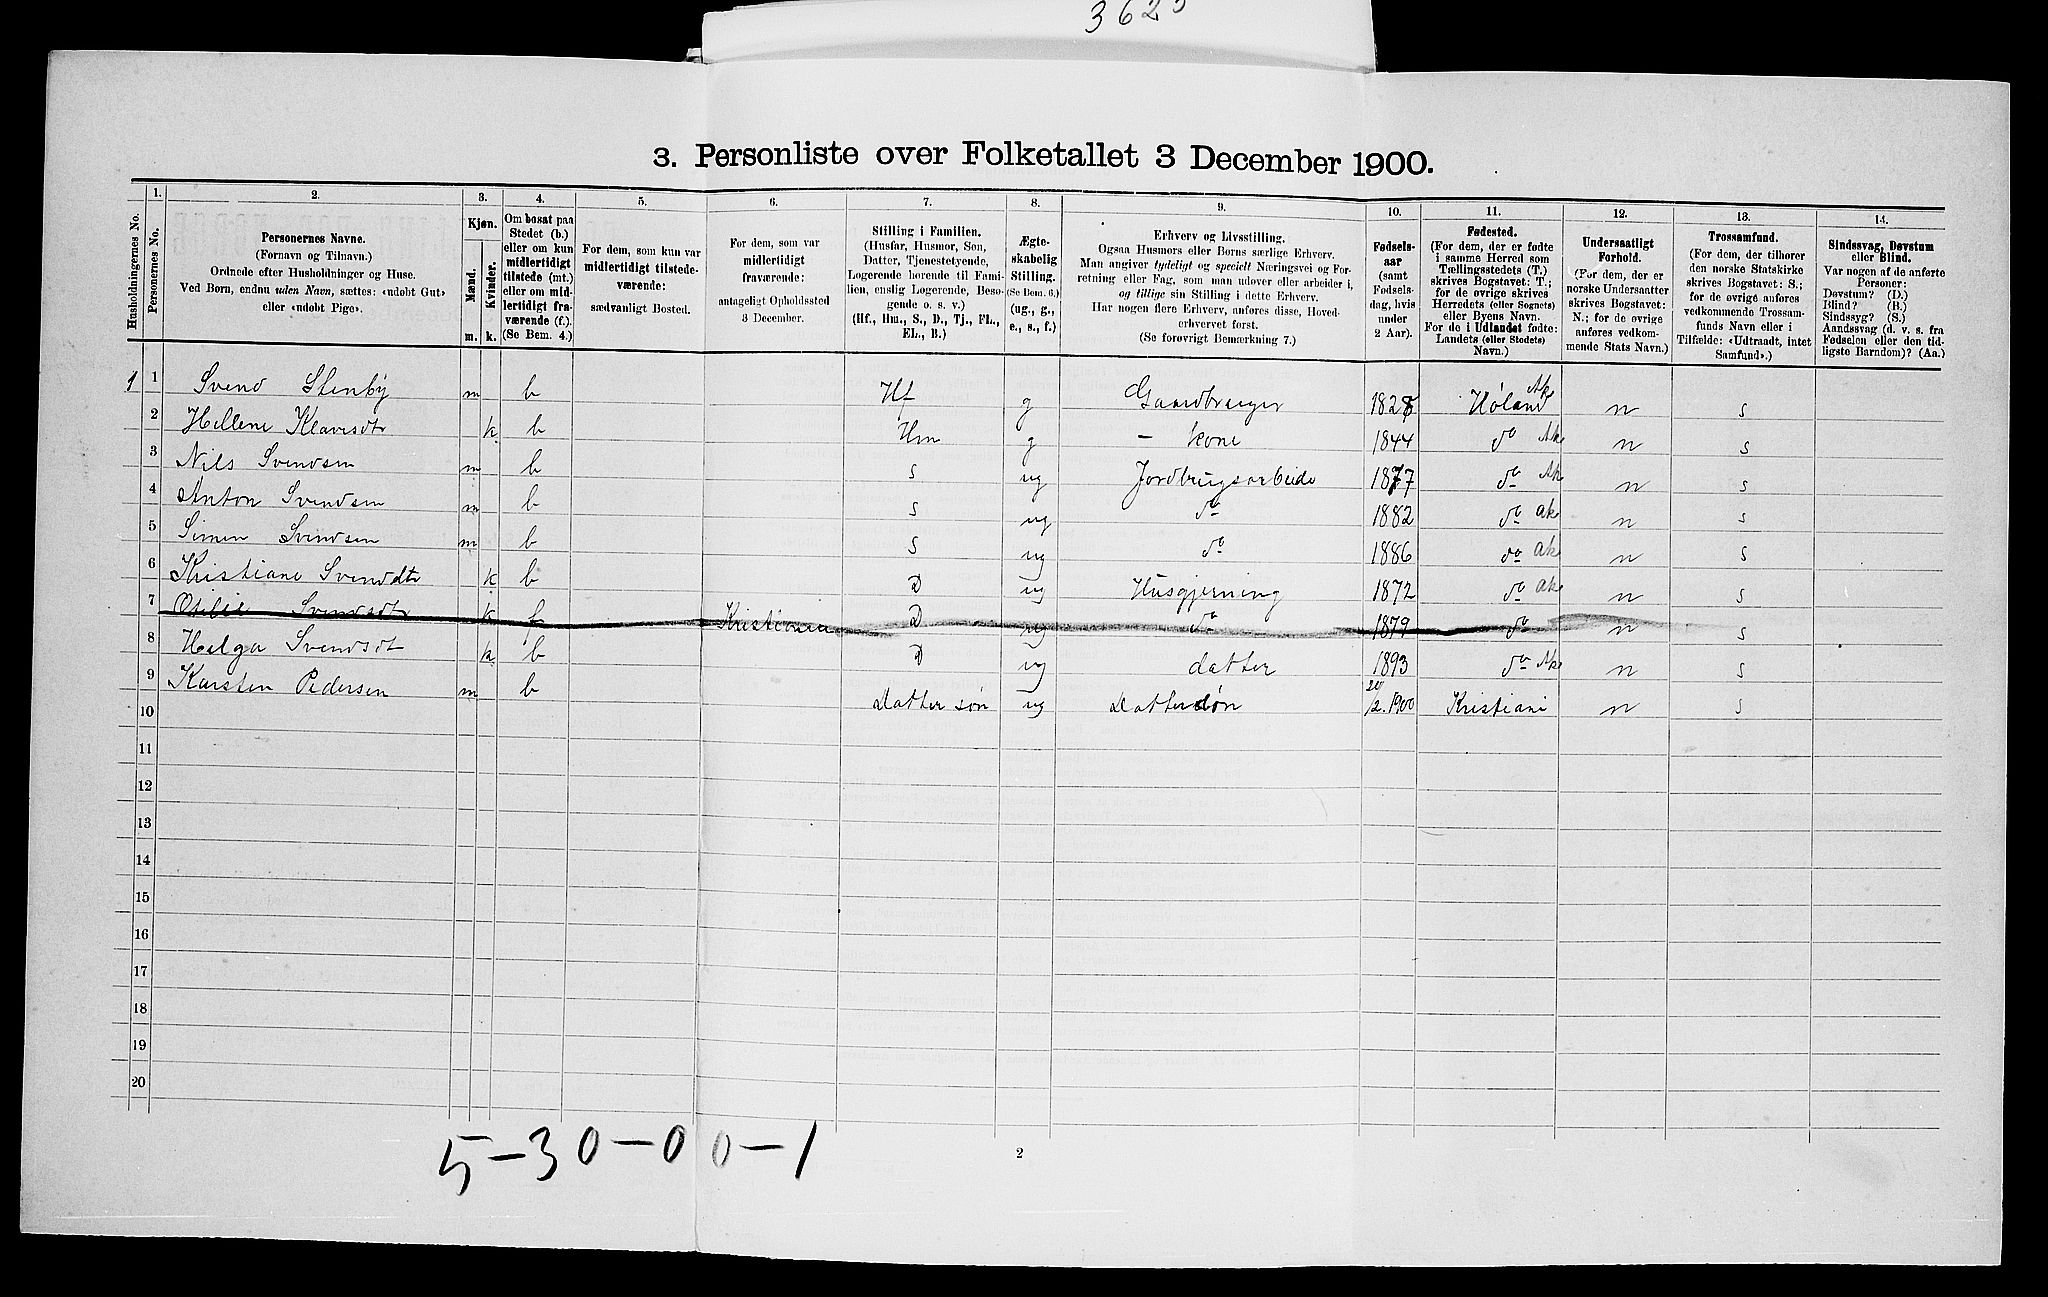 3625
3. Personliste over Folketallet 3 December 1900.
1. 2. 3. 4. 5. 6. 7. 8. 9. 10. 11. 12. 13. 14.
Husholdningernes No.
Personernes No.
Personernes Navne.
(Fornavn og Tilnavn.)
Ordnede efter Husholdninger og Huse.
Ved Børn, endnu uden Navn, sættes: «udøbt Gut»
eller «udøbt Pige».
Kjøn.
Mænd. Kvinder.
m. k.
Om bosat paa
Stedet (b.)
eller om kun
midlertidigt
tilstede (mt.)
eller om mid-
lertidigt fra-
værende (f.).
(Se Bem. 4.)
For dem, som kun var
midlertidigt tilstede-
værende:
sædvanligt Bosted.
For dem, som var
midlertidigt
fraværende:
antageligt Opholdssted
3 December.
Stilling i Familien.
(Husfar, Husmor, Søn,
Datter, Tjenestetyende,
Logerende hørende til Fami-
lien, enslig Logerende, Besø-
gende o. s. v.)
(Hf., Hm., S., D., Tj., FL.,
EL., B.)
Ægte-
skabelig
Stilling.
(Se Bem. 6.)
(ug., g.,
e., s., f.)
Erhverv og Livsstilling.
Ogsaa Husmors eller Børns særlige Erhverv.
Man angiver tydeligt og specielt Næringsvei og For-
retning eller Fag, som man udøver eller arbeider i,
og tillige sin Stilling i dette Erhverv.
Har nogen flere Erhverv, anføres disse, Hoved-
erhvervet først.
(Se forøvrigt Bemærkning 7.)
Fødsels-
aar
(samt
Fødsels-
dag, hvis
under
2 Aar).
Fødested.
(For dem, der er fødte
i samme Herred som
Tællingsstedets (T.)
skrives Bogstavet: T.;
for de øvrige skrives
Herredets (eller Sognets)
eller Byens Navn.
For de i Udlandet fødte:
Landets (eller Stedets)
Navn.)
Undersaatligt
Forhold.
(For dem, der er
norske Undersaatter
skrives Bogstavet:
N.; for de øvrige
anføres vedkom-
mende Stats Navn.)
Trossamfund.
(For dem, der tilhører
den norske Statskirke
skrives Bogstavet: S.;
for de øvrige anføres
vedkommende Trossam-
funds Navn eller i
Tilfælde: «Udtraadt, intet
Samfund».)
Sindssvag, Døvstum
eller Blind.
Var nogen af de anførte
Personer:
Døvstum? (D.)
Blind? (B.)
Sindssyg? (S.)
Aandssvag (d. v. s. fra
Fødselen eller den tid-
ligste Barndom)? (Aa.)
1 1 Svend Stenby m b Hf g Gaardbruger 1828 Høland Ak n s
2 Hellene Klavesdtr k. b Hm g - kone 1844 do Ak n s
3 Nils Svendsen m b s ug Jordbrugsarbeide 1877 do Ak n s
4 Anton Svendsen m b s ug do 1882 do Ak n s
5 Simen Svendsen m b s ug do 1886 do Ak n s
6 Kristiane Svenddtr k b D ug Husgjerning 1872 do Ak n s
7 Otilie Svendsdtr k f Kristiania D ug do 1879 do n s
8 Helga Svendsdt k b D ug datter 1893 do Ak n s
9 Karsten Pedersen m b Datter søn ug Dattersøn 20/2.1900 Kristiani n s
10
11
12
13
14
15
16
17
18
19
20
5-30-00-1
2